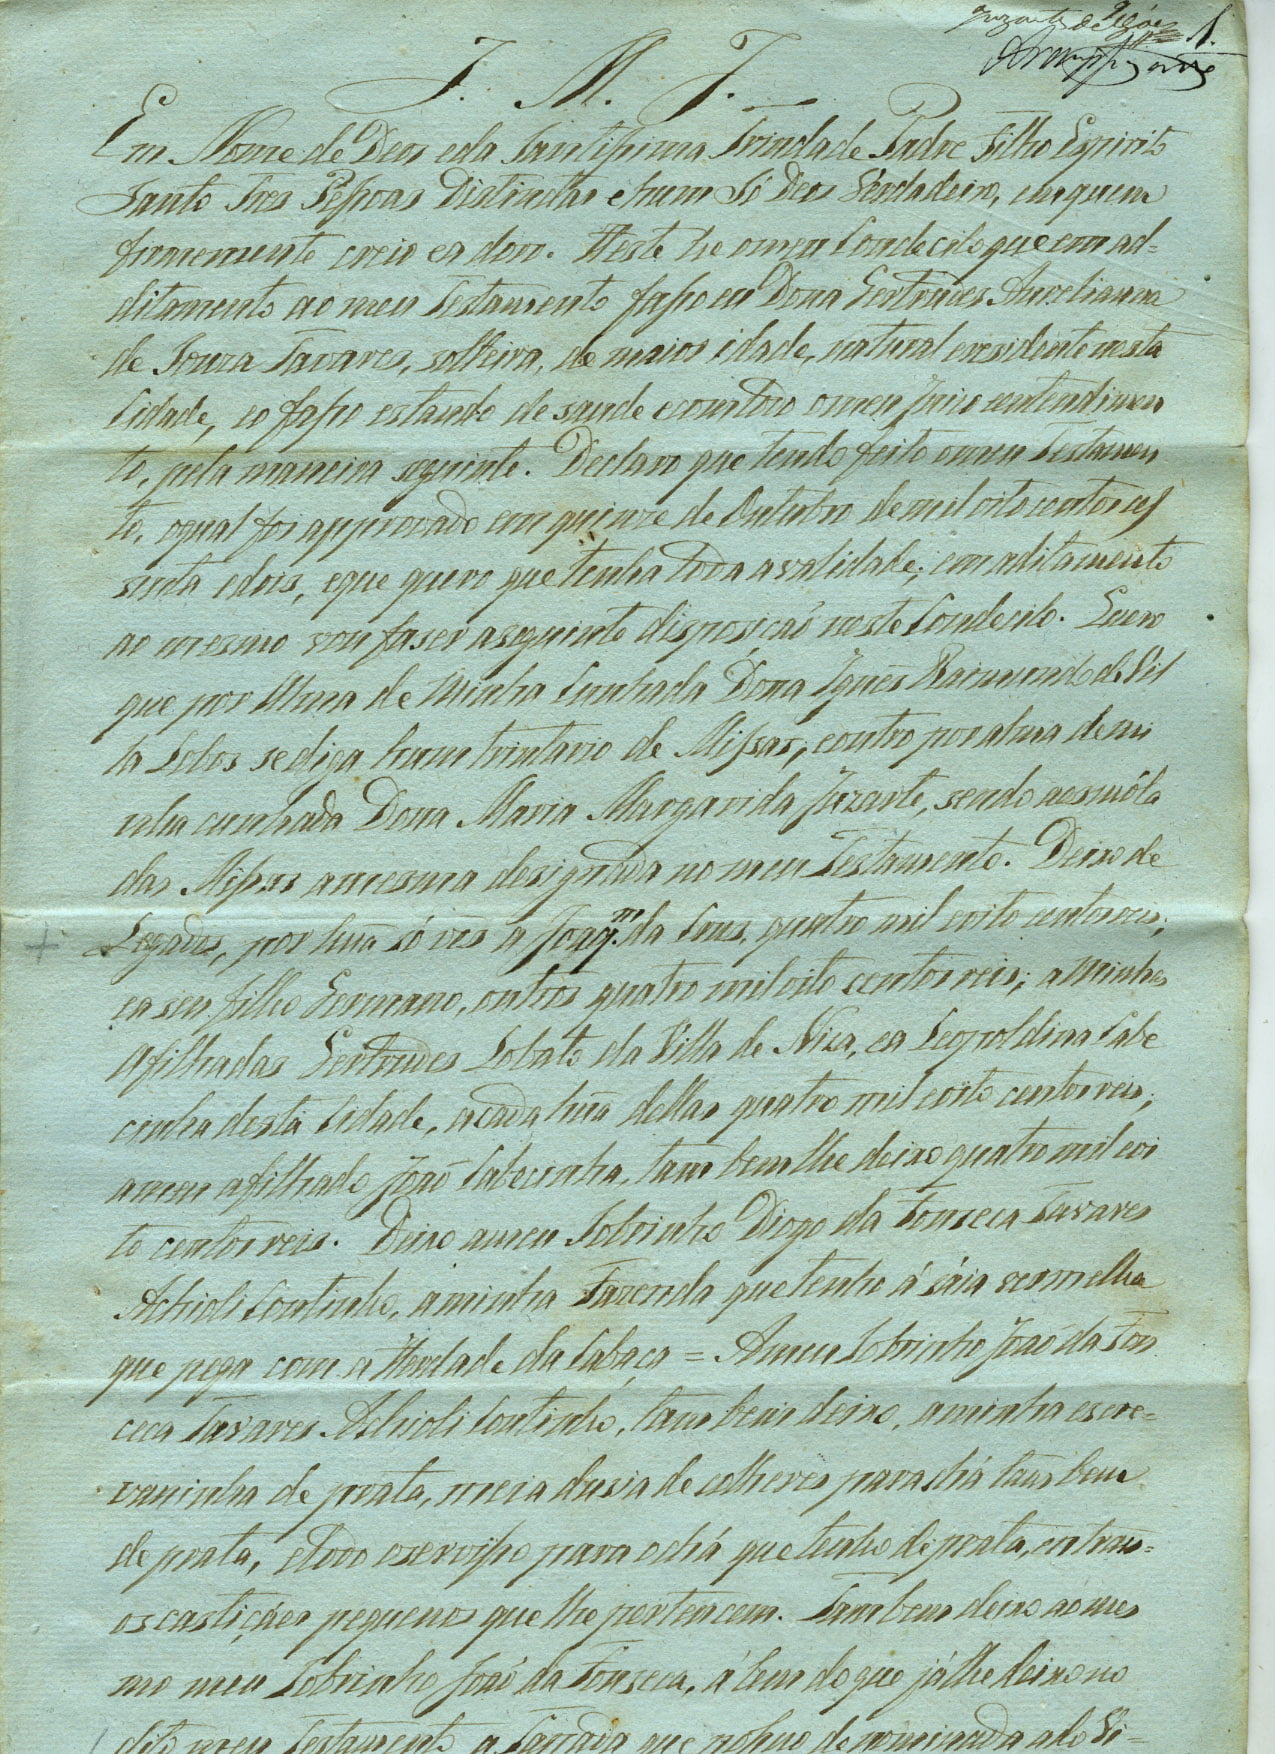 1.
J. M. J.
Em Nome de Deos e da Santissima Trindade Padre Filho Espirito
Santo Tres Pessoas Distinctas e hum Só Deos Verdadeiro, em quem
firmemente creio e adoro. Este he o meu Condecilo que em ad-
ditamento ao meu Testamento fasso eu Dona Gertrudes Aurelianna
de Souza Tavares, solteira, de maior idade, natural e residente nesta
Cidade, e o fasso estando de saude e com todo o meu Juizo entendimen
to, pela maneira seguinte. Declaro que tendo feito o meu Testamen
to, o qual foi approvado em quinze de Outubro de mil oito centos e ses
senta e dois, e que quero que tenha toda a validade; em aditamento
ao mesmo vou faser a seguinte disposicaõ neste Condecilo. Quero
que por Alma de Minha Cunhada Dona Ignes Raimundo de Vil
la Lobos se diga hum trintario de Missas, e outro por alma de mi
nha cunhada Dona Maria Margarida Juzarte, sendo a esmóla
das Missas a mesma designada no meu Testamento. Deixo de
Legados, por huã só ves a Joaq.m da Crus, quatro mil e oito centos reis;
e a seu filho Germano, outros quatro mil oito centos reis; a Minhas
Afilhadas Gertrudes Lobato da Villa de Niza, e a Leopoldina Cabe
cinha desta Cidade, a cada huã dellas quatro mil e oito centos reis;
a meu afilhado Joaõ Cabecinha, tambem lhe deixo quatro mil e oi
to centos reis. Deixo a meu Sobrinho Diogo da Fonseca Tavares
Achioli Coutinho, a minha Fazenda que tenho á Sáia vermelha
que pega com a Herdade da Cabaça = A meu Sobrinho Joaõ da Fon
ceca Tavares Achioli Coutinho, tambem deixo, a minha escre-
vaninha de prata, meia dusia de colheres para chá tambem
de prata, e todo o servisso para o chá que tenho de prata, entran-
os castiçáes pequenos que lhe pertencem. Tambem deixo ao mes
mo meu Sobrinho Joaõ da Fonseca, álem do que já lhe deixo no
dito meu Testamento a Tappada que he denominada a do Vi-